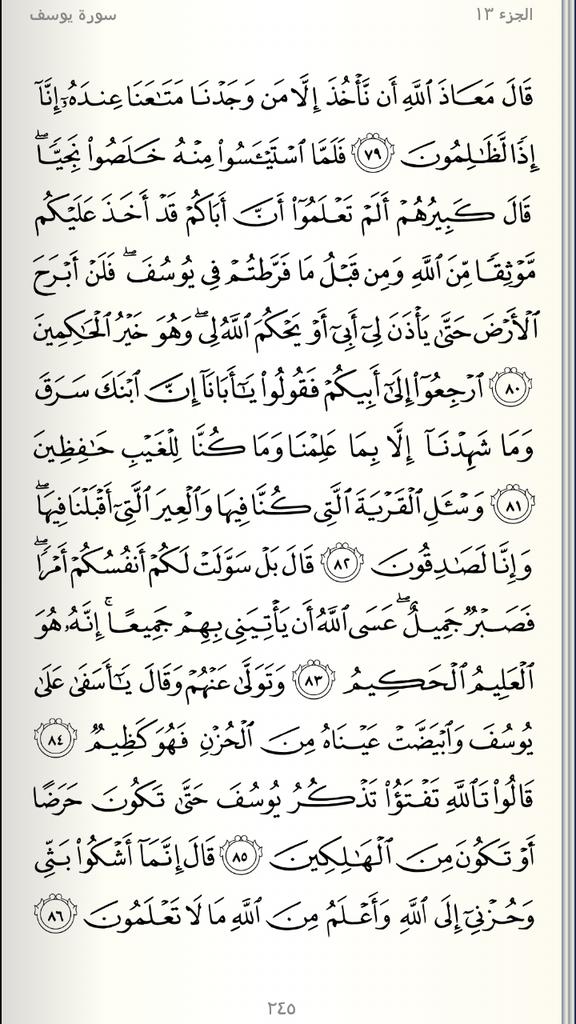 الجزء ١٣
سورة يوسف
قَالَ مَعَاذَ ٱللَّهِ أَن نَّأۡخُذَ إِلَّا مَن وَجَدۡنَا مَتَٰعَنَا عِندَهُۥٓ إِنَّآ
إِذٗا لَّظَٰلِمُونَ ٧٩ فَلَمَّا ٱسۡتَيۡـَٔسُواْ مِنۡهُ خَلَصُواْ نَجِيّٗاۖ
قَالَ كَبِيرُهُمۡ أَلَمۡ تَعۡلَمُوٓاْ أَنَّ أَبَاكُمۡ قَدۡ أَخَذَ عَلَيۡكُم
مَّوۡثِقٗا مِّنَ ٱللَّهِ وَمِن قَبۡلُ مَا فَرَّطتُمۡ فِي يُوسُفَۖ فَلَنۡ أَبۡرَحَ
ٱلۡأَرۡضَ حَتَّىٰ يَأۡذَنَ لِيٓ أَبِيٓ أَوۡ يَحۡكُمَ ٱللَّهُ لِيۖ وَهُوَ خَيۡرُ ٱلۡحَٰكِمِينَ
٨٠ ٱرۡجِعُوٓاْ إِلَىٰٓ أَبِيكُمۡ فَقُولُواْ يَٰٓأَبَانَآ إِنَّ ٱبۡنَكَ سَرَقَ
وَمَا شَهِدۡنَآ إِلَّا بِمَا عَلِمۡنَا وَمَا كُنَّا لِلۡغَيۡبِ حَٰفِظِينَ
٨١ وَسۡـَٔلِ ٱلۡقَرۡيَةَ ٱلَّتِي كُنَّا فِيهَا وَٱلۡعِيرَ ٱلَّتِيٓ أَقۡبَلۡنَا فِيهَاۖ
وَإِنَّا لَصَٰدِقُونَ ٨٢ قَالَ بَلۡ سَوَّلَتۡ لَكُمۡ أَنفُسُكُمۡ أَمۡرٗاۖ
فَصَبۡرٞ جَمِيلٌۖ عَسَى ٱللَّهُ أَن يَأۡتِيَنِي بِهِمۡ جَمِيعًاۚ إِنَّهُۥ هُوَ
ٱلۡعَلِيمُ ٱلۡحَكِيمُ ٨٣ وَتَوَلَّىٰ عَنۡهُمۡ وَقَالَ يَٰٓأَسَفَىٰ عَلَىٰ
يُوسُفَ وَٱبۡيَضَّتۡ عَيۡنَاهُ مِنَ ٱلۡحُزۡنِ فَهُوَ كَظِيمٞ ٨٤
قَالُواْ تَٱللَّهِ تَفۡتَؤُاْ تَذۡكُرُ يُوسُفَ حَتَّىٰ تَكُونَ حَرَضًا
أَوۡ تَكُونَ مِنَ ٱلۡهَٰلِكِينَ ٨٥ قَالَ إِنَّمَآ أَشۡكُواْ بَثِّي
وَحُزۡنِيٓ إِلَى ٱللَّهِ وَأَعۡلَمُ مِنَ ٱللَّهِ مَا لَا تَعۡلَمُونَ ٨٦
٢٤٥